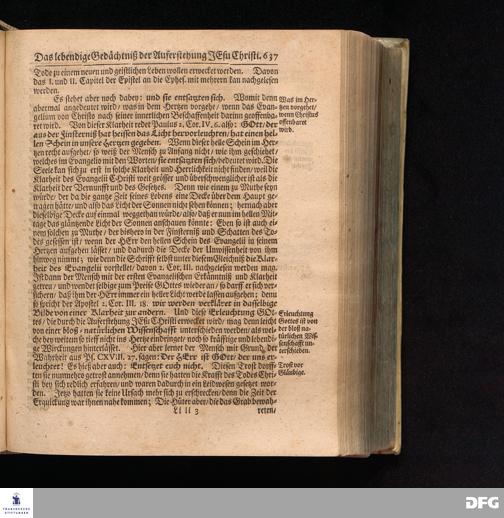 Das lebendige Gedächtniß der Auferstehung JEsu Christi. 637
Tode zu einem neuen und geistlichen Leben wollen erwecket werden. Davon
das I. und II. Capitel der Epistel an die Ephes. mit mehrern kan nachgelesen
werden.
Es stehet aber noch dabey: und sie entsatzten sich. Womit denn
abermal angedeutet wird / was in dem Hertzen vorgehe / wenn das Evan-
gelium von Christo nach seiner innerlichen Beschaffenheit darinn geoffenba-
ret wird. Von dieser Klarheit redet Paulus 2. Cor. IV, 6. also: GOtt / der
aus der Finsterniß hat heissen das Licht hervorleuchten / hat einen hel-
len Schein in unsere Hertzen gegeben. Wenn dieser helle Schein im Her-
tzen recht aufgehet / so weiß der Mensch zu Anfang nicht / wie ihm geschiehet /
welches im Evangelio mit den Worten / sie entsatzten sich / bedeutet wird. Die
Seele kan sich zu erst in solche Klarheit und Herrlichkeit nicht finden / weil die
Klarheit des Evangelii Christi weit grösser und überschwenglicher ist als die
Klarheit der Vernunfft und des Gesetzes. Denn wie einem zu Muthe seyn
würde / der da die gantze Zeit seines Lebens eine Decke über dem Haupt ge-
tragen hätte / und also das Licht der Sonnen nicht sehen können; hernach aber
dieselbige Decke auf einmal weggethan würde / also / daß er nun im hellen Mit-
tage das gläntzende Licht der Sonnen anschauen könnte: Eben so ist auch ei-
nem solchen zu Muthe / der bisher in der Finsterniß und Schatten des To-
des gesessen ist / wenn der HErr den hellen Schein des Evangelii in seinem
Hertzen aufgehen lässet / und dadurch die Decke der Unwissenheit von ihm
hinweg nimmt; wie denn die Schrifft selbst unter diesem Gleichniß die Klar-
heit des Evangelii vorstellet / davon 2. Cor. III. nachgelesen werden mag.
Ist dann der Mensch mit der ersten Evangelischen Erkänntniß und Klarheit
getreu / und wendet selbige zum Preise GOttes wieder an / so darff er sich ver-
sichern / daß ihm der HErr immer ein heller Licht werde lassen aufgehen; denn
so spricht der Apostel 2. Cor. III. 18. wir werden verkläret in dasselbige
Bilde von einer Klarheit zur andern. Und diese Erleuchtung GOt-
tes / die durch die Auferstehung JEsu Christi erwecket wird / mag denn leicht
von einer bloß-natürlichen Wissenschafft unterschieden werden / als wel-
che bey weiten so tieff nicht ins Hertze eindringet / noch so kräfftige und lebendi-
ge Wirckungen hinterlässet. Hier aber lernet der Mensch mit Grund der
Wahrheit aus Ps. CXVIII. 27. sagen: Der HErr ist GOtt / der uns er-
leuchtet! Es hieß aber auch: Entsetzet euch nicht. Diesen Trost dorff-
ten sie nunmehr getrost annehmen / denn sie hatten die Krafft des Todes Chri-
sti bey sich redlich erfahren / und waren dadurch in ein Leidwesen gesetzet wor-
den. Jetzo hatten sie keine Ursach mehr sich zu erschrecken / denn die Zeit der
Erquickung war ihnen nahe kommen; Die Hüter aber / die das Grab bewah-
Ll ll 3
reten /
Was im Her-
tzen vorgehet /
wenn Christus
offenbaret
wird.
Erleuchtung
Gottes ist von
der bloß na-
türlichen Wis-
senschafft un-
terschieden.
Trost vor
Gläubige.
FRANCKESCHE
STIFTUNGEN
DFG